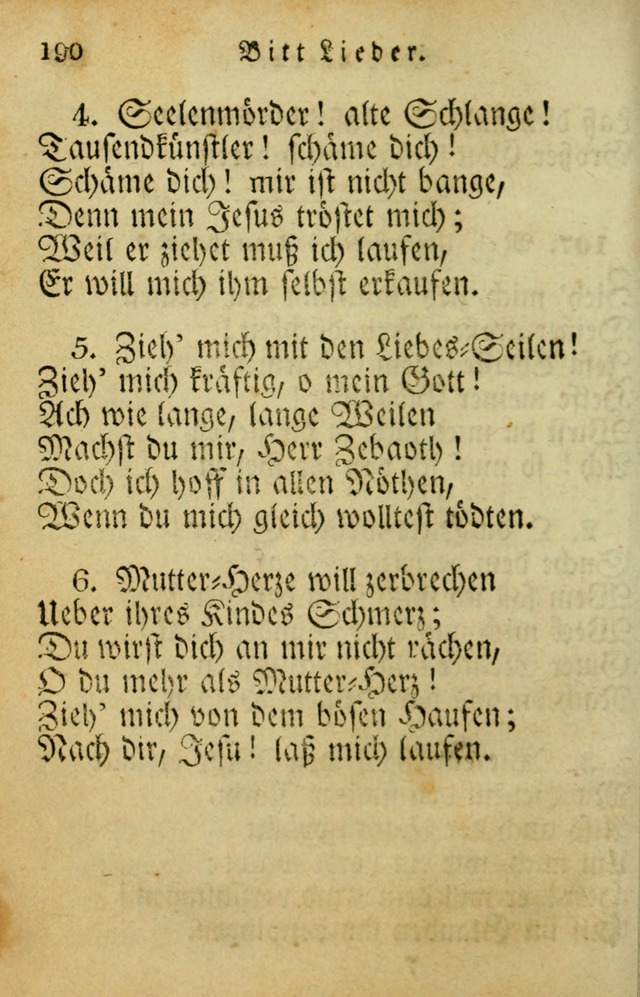 190 Bitt Lieder.
4. Seelenmörder! alte Schlange!
Tausendkünstler! schäme dich!
Schäme dich! mir ist nicht bange,
Denn mein Jesus tröstet mich;
Weil er ziehet muß ich laufen,
Er will mich ihm selbst erkaufen.
5. Zieh' mich mit den Liebes-Seilen!
Zieh' mich kräftig, o mein Gott!
Ach wie lange, lange Weilen
Machst du mir, Herr Zebaoth!
Doch ich hoff in allen Nöthen,
Wenn du mich gleich wolltest tödten.
6. Mutter-Herze will zerbrechen
Ueber ihres Kindes Schmerz;
Du wirst dich an mir nicht rächen,
O du mehr als Mutter-Herz!
Zieh' mich von dem bösen Haufen;
Nach dir, Jesu! laß mich laufen.